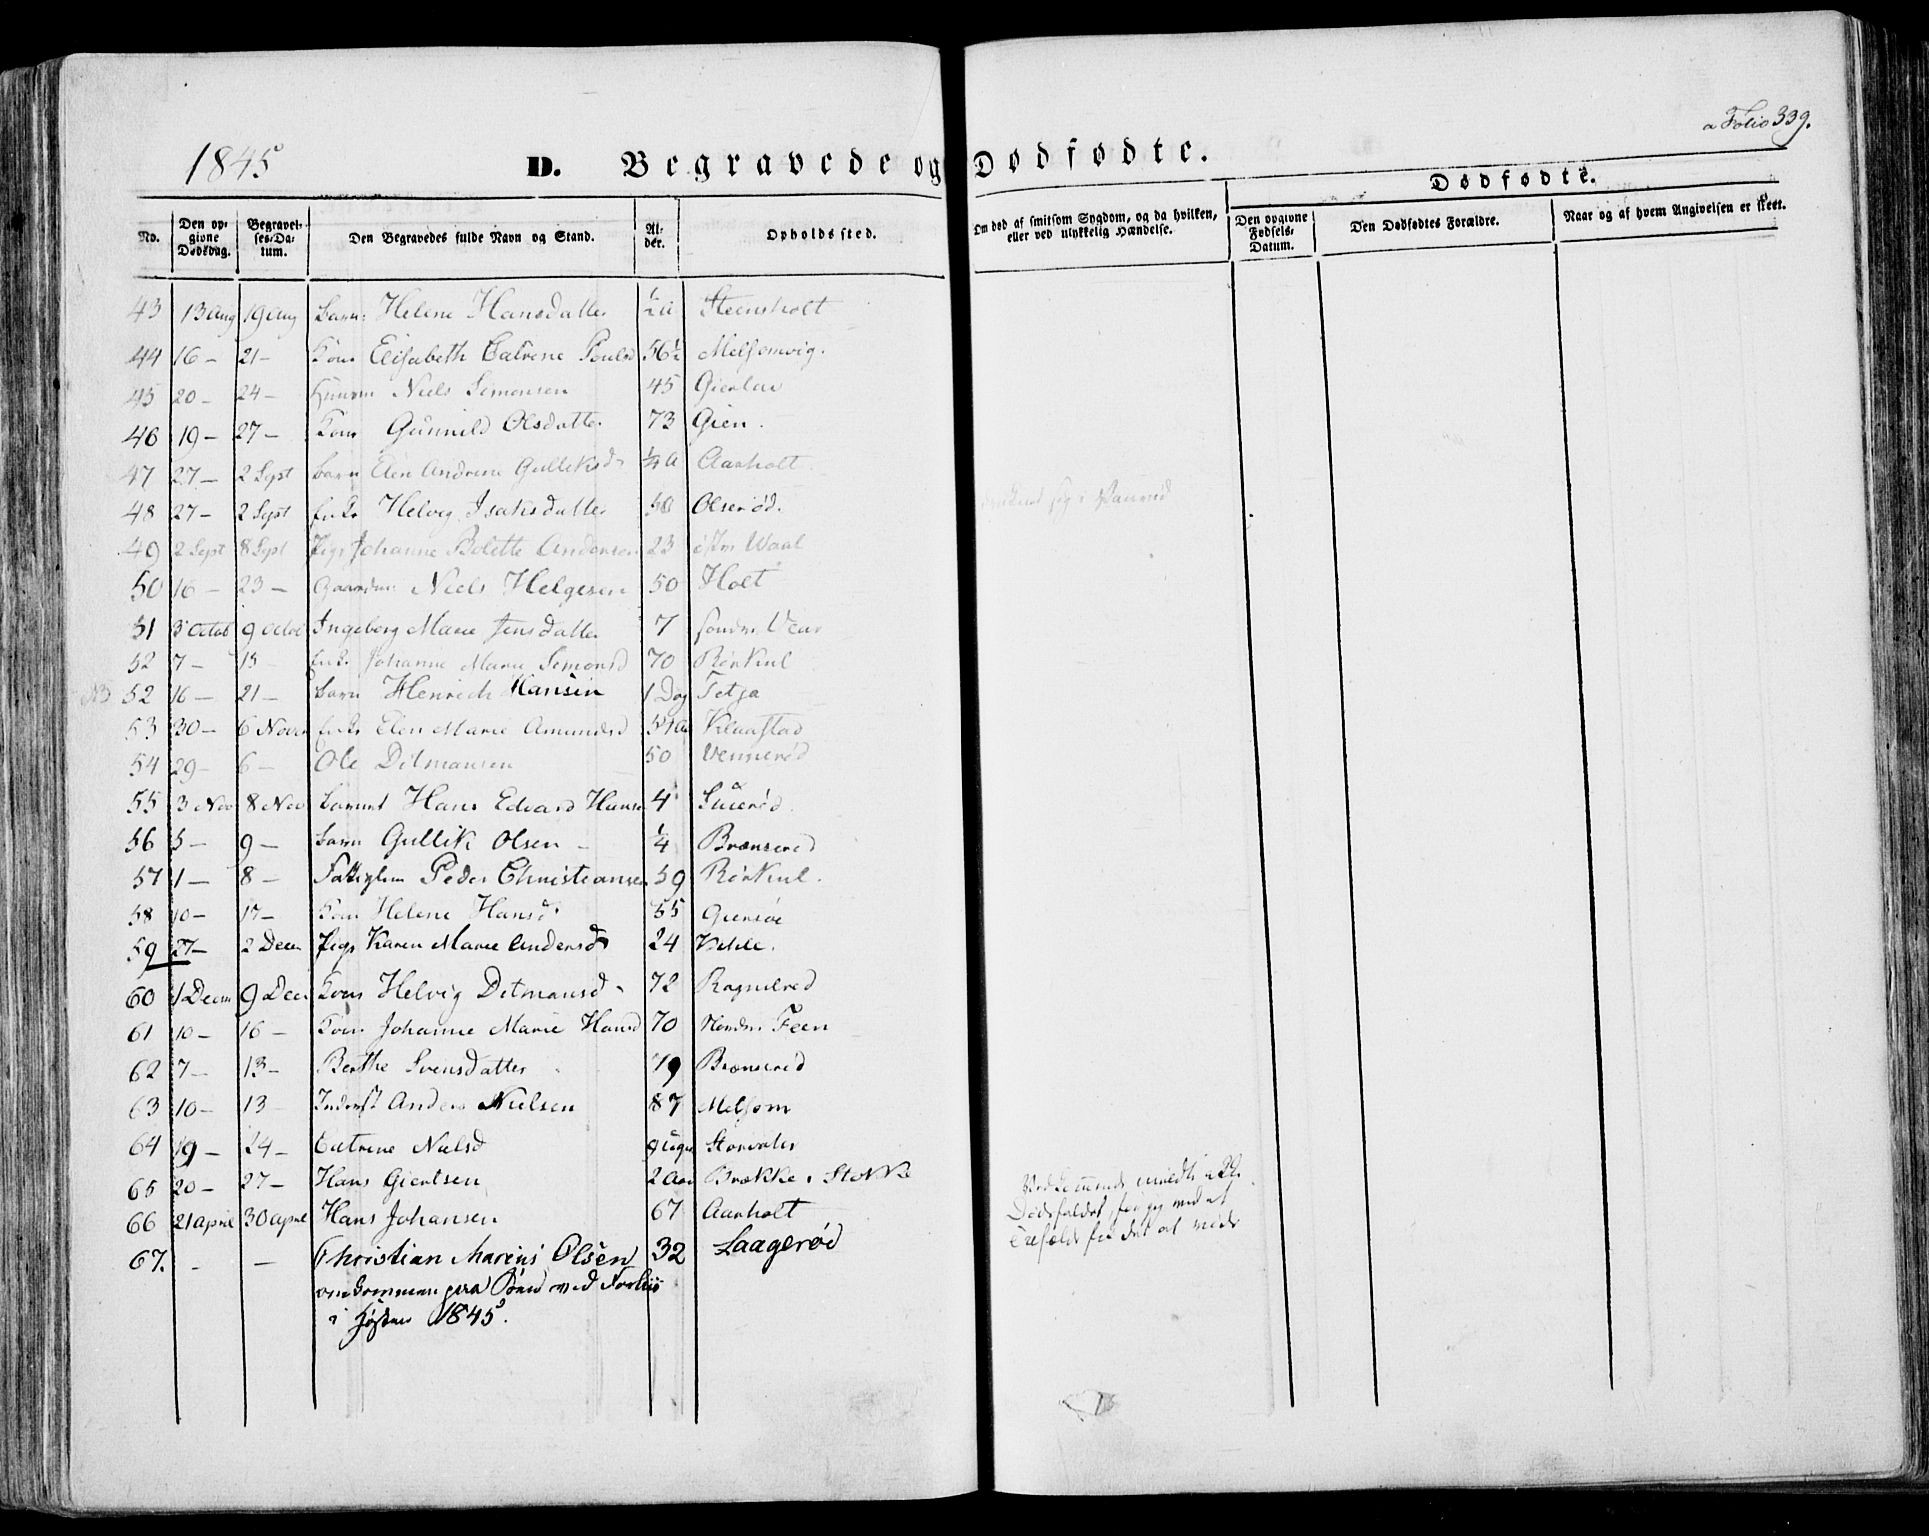 a Folio 339.
1845
D. Begravede og Dødfødte.
Dødfødte.
No. | Den opgivne Dødsdag. | Begravelses-Datum. | Den Begravedes fulde Navn og Stand. | Alder. | Opholdssted. | Om død af smitsom Sygdom, og da hvilken, eller ved ulykkelig Hændelse. | Den opgivne Fødsels-Datum. | Den Dødfødtes Forældre. | Naar og af hvem Angivelsen er skeet.
43 13 Aug 19 Aug Barn Helene Hansdatter ½ a Steensholt
44 16 – 21 – Kone Elisabeth Catrine Poulsd 56½ Melsomvig.
45 20 – 24 – Huusm Niels Simonsen 45 Gierlau
46 19 – 27 – Kone Gunnild Olsdatter 73 Gien.
47 27 – 2 Sept Barn Elen Andrine Gulliksd ¼ a Aarholt
48 27 – 2 Sept Enke Helvig Isaksdatter 50 Olserød.
49 2 Sept 8 Sept Pige Johanne Bolette Andersen 23 østre Waal
50 16 – 23 – Gaardm Niels Helgesen 50 Holt
51 3 Octob 9 Octob Ingeborg Marie Jensdatter 7 søndre Vear
52 7 – 13 – Enke Johanne Marie Simonsd 70 Rørkiul
NB 52 16 – 21 – Barn Henrich Hansen 1 Dag Tetja
53 30 – 6 Novr Enke Elen Marie Amundsd 54 a Klaastad
54 29 – 6 – Ole Ditmansen 50 Vennerød
55 3 Nov 8 Nov Barnet Hans Edvard Hansen 4
56 5 – 9 – Barn Gullik Olsen – ¼ Brænserød
57 1 – 8 – Fattiglem Peder Christiansen 59 Rørkiul.
58 10 – 17 – Kone Helene Hansd 55 Giersøe
59 27 – 2 Decm Pige Karen Marie Andersd 24
60 1 Decm 9 Decm Kone Helvig Ditmansd 72 Ragnerød
61 10 – 16 – Kone Johanne Marie Hansd 70 Nordre Feen
62 7 – 13 – Berthe Svensdatter 79 Brænserød
63 10 – 13 Inderst Anders Nielsen 87 Melsom
64 19 – 24 – Catrine Nielsd 9 Uger
65 20 – 27 – Hans Giertsen 2 Aar Brække i Stokke
66 21 April 30 April Hans Johansen 67 Aarholt
67. – – Christian Marius Olsen 32 Laagerød
omkommen paa
i Høsten 1845.